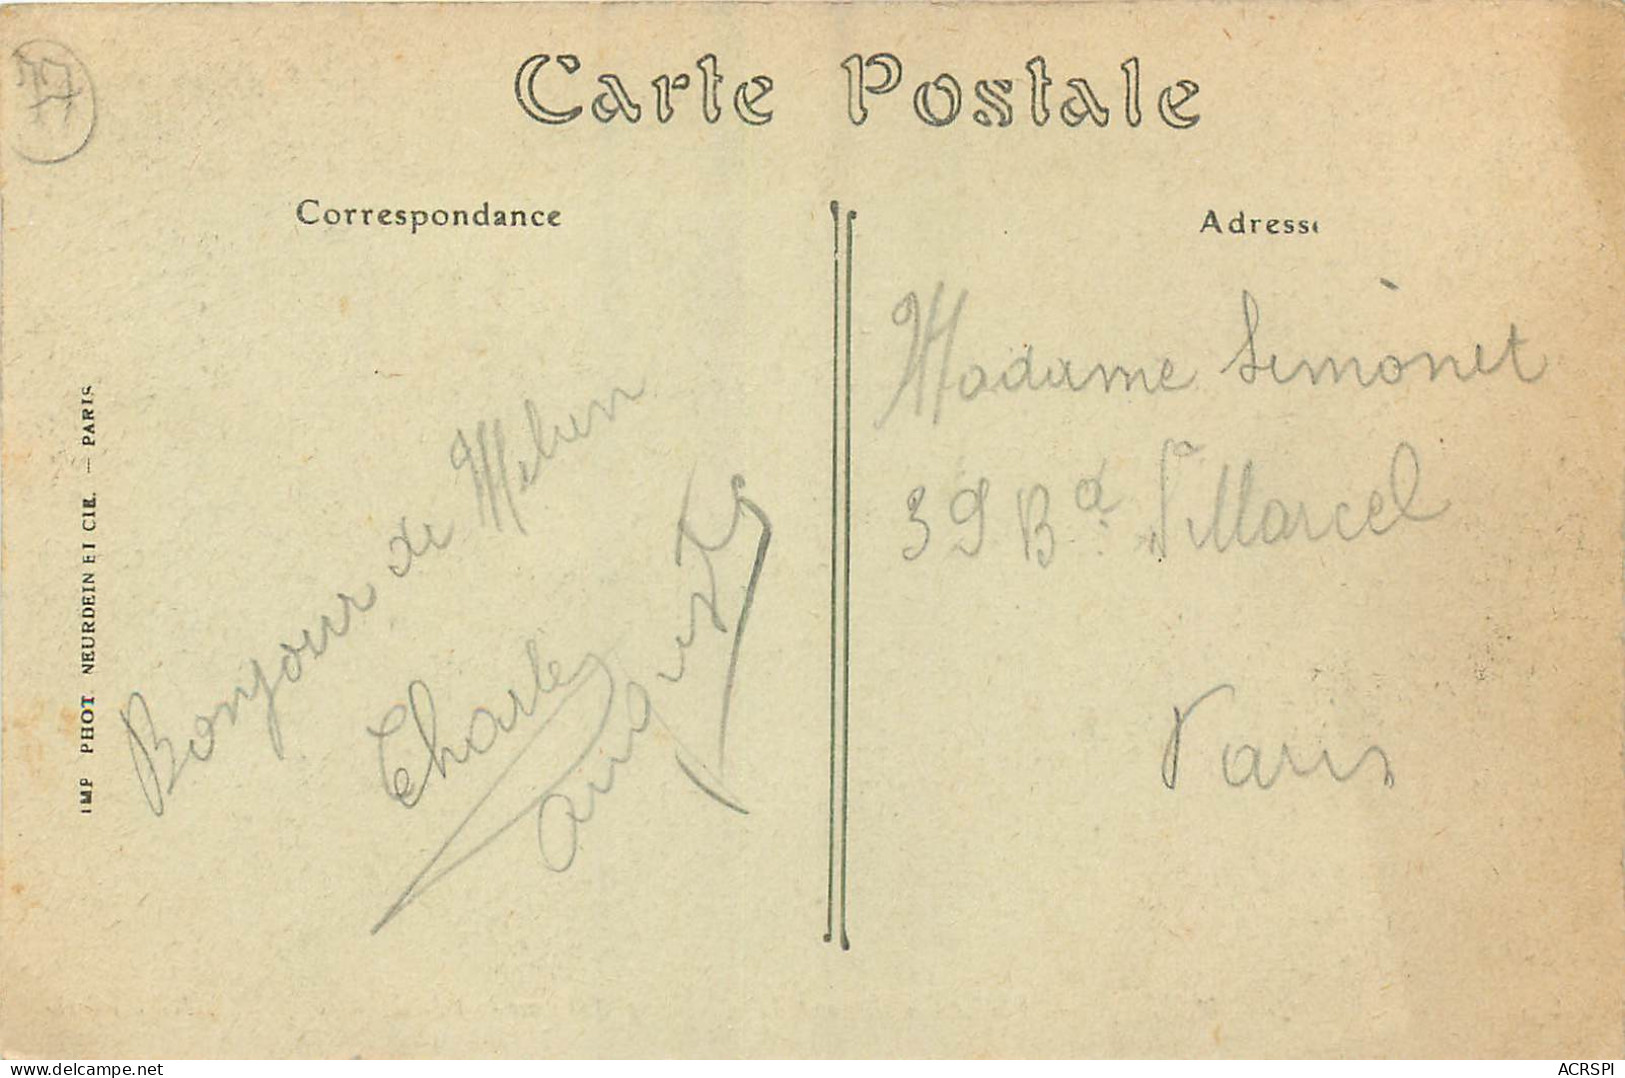 77
Carte Postale
Correspondance
Adresse
Bonjour de Melun
Charles
August
Madame Simonet
39 Bd St Marcel
Paris
IMP PHOT NEURDEIN ET CIE. — PARIS
delcampe.net
ACRSPI